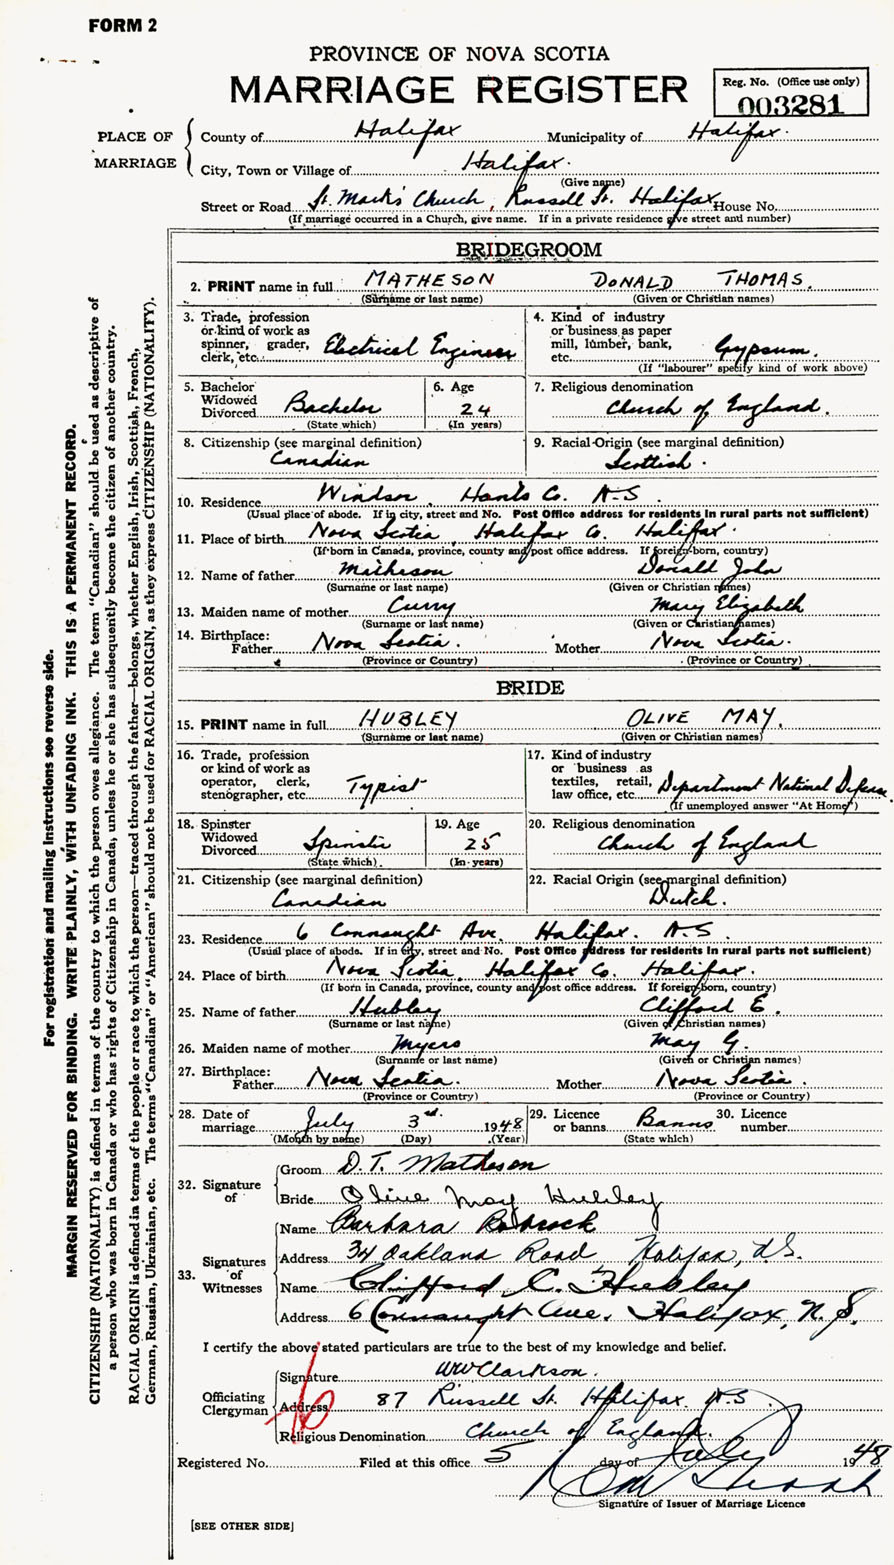 FORM 2
PROVINCE OF NOVA SCOTIA
MARRIAGE REGISTER
Reg. No. (Office use only)
003281
PLACE OF MARRIAGE
County of Halifax Municipality of Halifax.
City, Town or Village of Halifax.
(Give name)
Street or Road St. Mark's Church, Russell St. Halifax House No.
(If marriage occurred in a Church, give name. If in a private residence give street and number)
BRIDEGROOM
2. PRINT name in full MATHESON DONALD THOMAS.
(Surname or last name) (Given or Christian names)
3. Trade, profession or kind of work as spinner, grader, clerk, etc. Electrical Engineer
4. Kind of industry or business as paper mill, lumber, bank, etc. Gypsum.
(If "labourer" specify kind of work above)
5. Bachelor Widowed Divorced Bachelor
(State which)
6. Age 24
(In years)
7. Religious denomination
Church of England.
8. Citizenship (see marginal definition)
Canadian
9. Racial Origin (see marginal definition)
Scottish.
10. Residence Windsor, Hants Co. N.S.
(Usual place of abode. If in city, street and No. Post Office address for residents in rural parts not sufficient)
11. Place of birth Nova Scotia, Halifax Co. Halifax.
(If born in Canada, province, county and post office address. If foreign-born, country)
12. Name of father Matheson Donald John
(Surname or last name) (Given or Christian names)
13. Maiden name of mother Curry Mary Elizabeth
(Surname or last name) (Given or Christian names)
14. Birthplace:
Father Nova Scotia. Mother Nova Scotia.
(Province or Country) (Province or Country)
BRIDE
15. PRINT name in full HUBLEY OLIVE MAY.
(Surname or last name) (Given or Christian names)
16. Trade, profession or kind of work as operator, clerk, stenographer, etc. Typist
17. Kind of industry or business as textiles, retail, law office, etc. Department National Defense.
(If unemployed answer "At Home")
18. Spinster Widowed Divorced Spinster
(State which)
19. Age 25
(In years)
20. Religious denomination
Church of England
21. Citizenship (see marginal definition)
Canadian
22. Racial Origin (see marginal definition)
Dutch.
23. Residence 6 Connaught Ave, Halifax. N.S.
(Usual place of abode. If in city, street and No. Post Office address for residents in rural parts not sufficient)
24. Place of birth Nova Scotia, Halifax Co. Halifax.
(If born in Canada, province, county and post office address. If foreign-born, country)
25. Name of father Hubley Clifford E.
(Surname or last name) (Given or Christian names)
26. Maiden name of mother Myers May G.
(Surname or last name) (Given or Christian names)
27. Birthplace:
Father Nova Scotia. Mother Nova Scotia.
(Province or Country) (Province or Country)
28. Date of marriage July 3rd. 1948
(Month by name) (Day) (Year)
29. Licence or banns Banns
(State which)
30. Licence number
32. Signature of
Groom D. T. Matheson
Bride Olive May Hubley
33. Signatures of Witnesses
Name Barbara
Address 34 Oakland Road Halifax, N.S.
Name Clifford C. Hubley
Address 6 Connaught Ave. Halifax, N.S.
I certify the above stated particulars are true to the best of my knowledge and belief.
Officiating Clergyman
Signature WW Clarkson.
Address 87 Russell St. Halifax. N.S
Religious Denomination Church of England.
Registered No. Filed at this office 5 day of July 1948
Signature of Issuer of Marriage Licence
[SEE OTHER SIDE]
For registration and mailing instructions see reverse side.
MARGIN RESERVED FOR BINDING. WRITE PLAINLY, WITH UNFADING INK. THIS IS A PERMANENT RECORD.
CITIZENSHIP (NATIONALITY) is defined in terms of the country to which the person owes allegiance. The term "Canadian" should be used as descriptive of
a person who was born in Canada or who has rights of Citizenship in Canada, unless he or she has subsequently become the citizen of another country.
RACIAL ORIGIN is defined in terms of the people or race to which the person—traced through the father—belongs, whether English, Irish, Scottish, French,
German, Russian, Ukrainian, etc. The terms "Canadian" or "American" should not be used for RACIAL ORIGIN, as they express CITIZENSHIP (NATIONALITY).